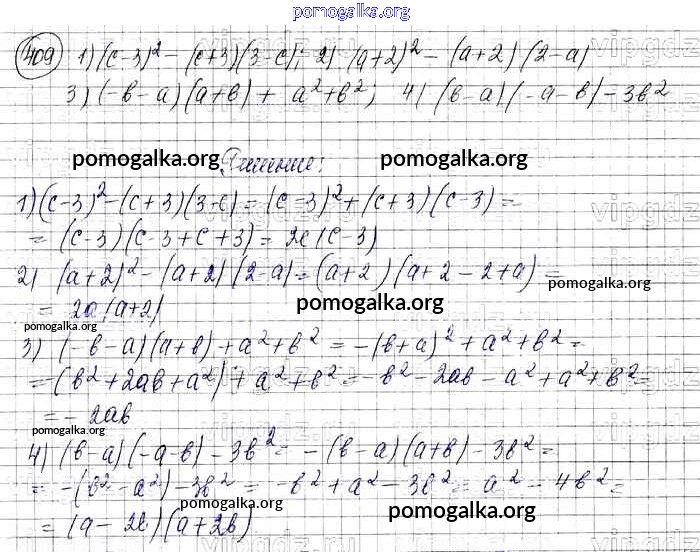 pomogalka.org
409 1) (c-3)² - (c+3)(3-c); 2) (a+2)² - (a+2)(2-a)
3) (-в-a)(a+в) + a²+в²; 4) (в-a)(-a-в) - 3в²
pomogalka.org Решение: pomogalka.org
1) (c-3)² - (c+3)(3-c) = (c-3)² + (c+3)(c-3) =
= (c-3)(c-3+c+3) = 2c(c-3)
2) (a+2)² - (a+2)(2-a) = (a+2)(a+2-2+a) =
= 2a(a+2) pomogalka.org
pomogalka.org
3) (-в-a)(a+в) + a²+в² = -(в+a)² + a²+в² =
= -(в²+2aв+a²) + a²+в² = -в²-2aв-a²+a²+в² =
= -2aв
pomogalka.org
4) (в-a)(-a-в) - 3в² = -(в-a)(a+в) - 3в² =
= -(в²-a²) - 3в² = -в²+a²-3в² = a²-4в² =
pomogalka.org pomogalka.org
= (a-2в)(a+2в)